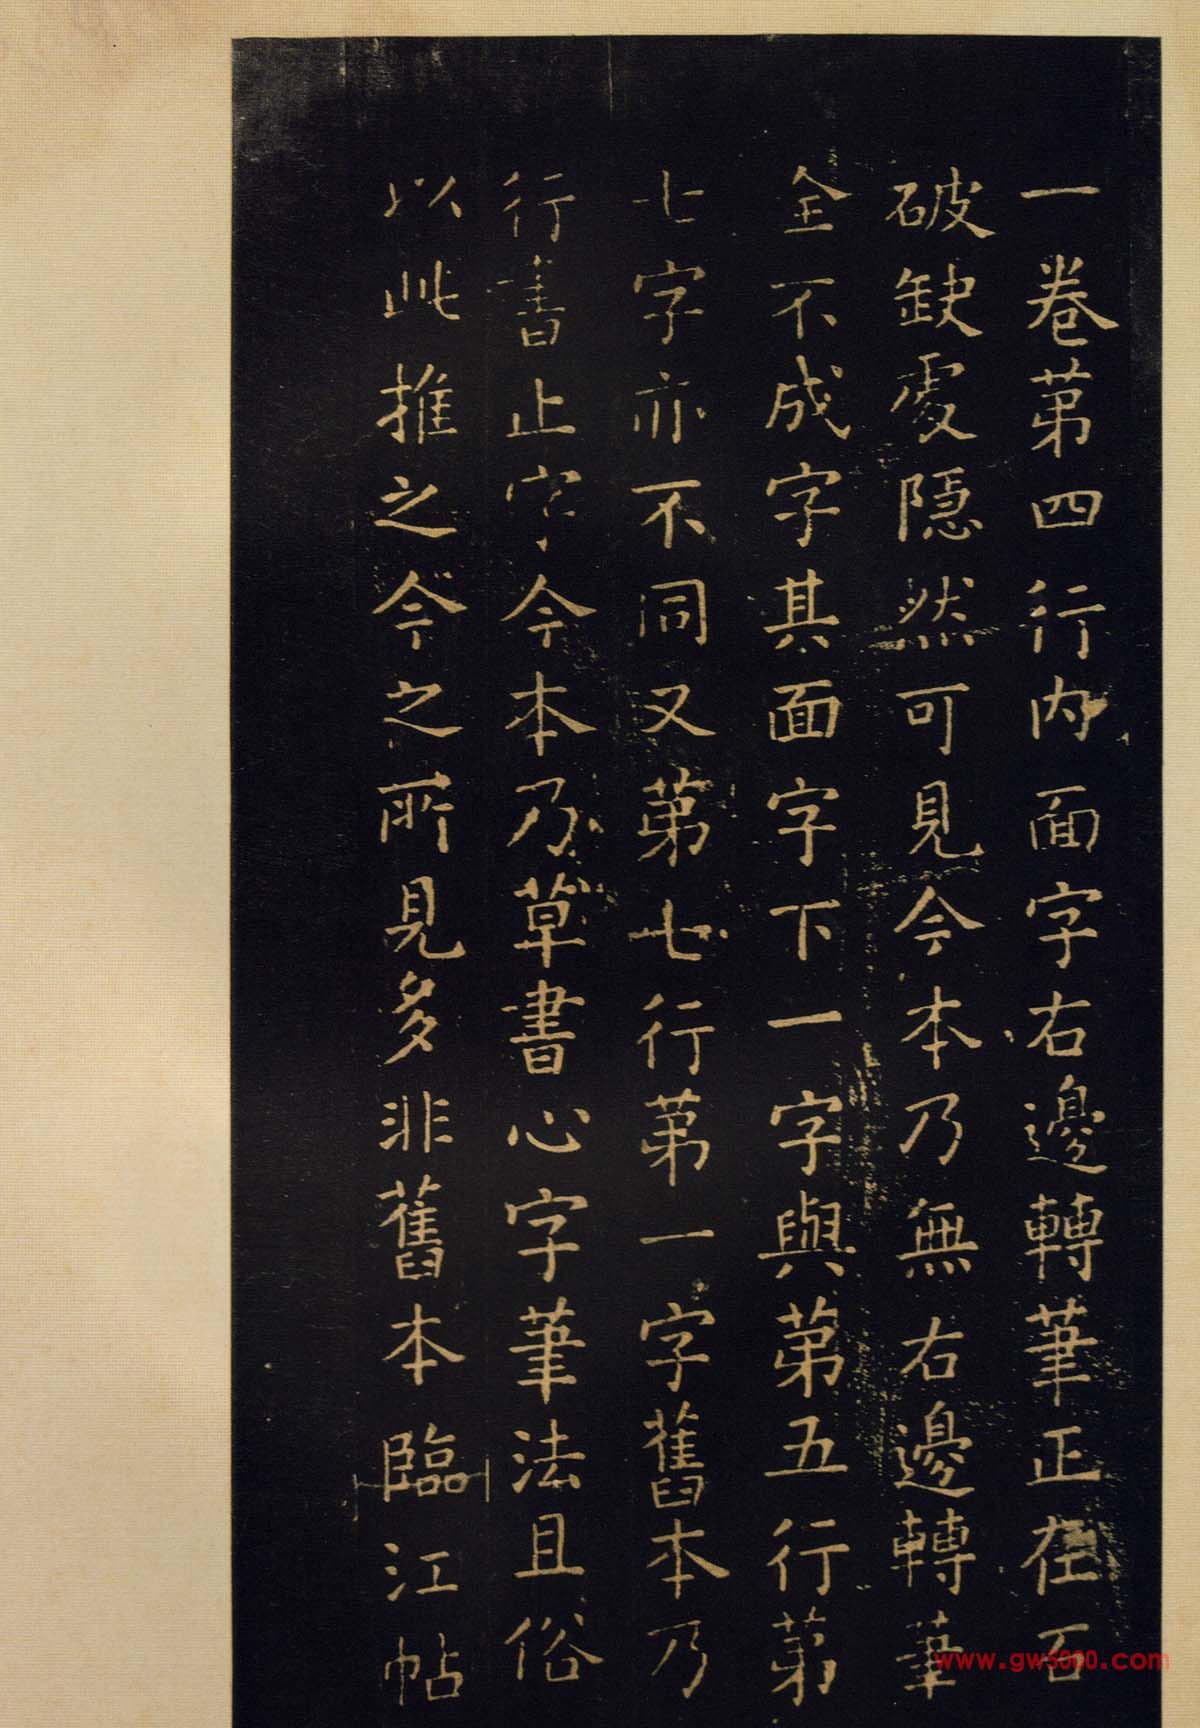 一卷第四行内面字右邊轉筆正在石
破缺處隱然可見今本乃無右邊轉筆
全不成字其面字下一字與第五行第
七字亦不同又第七行第一字舊本乃
行書止字今本乃草書心字筆法且俗
以此推之今之所見多非舊本臨江帖
www.gw5000.com